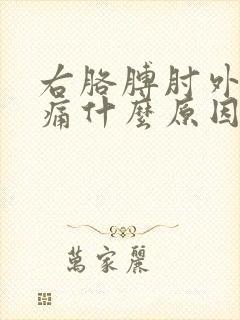 右胳膊肘外
痛什麼原因
萬家麗